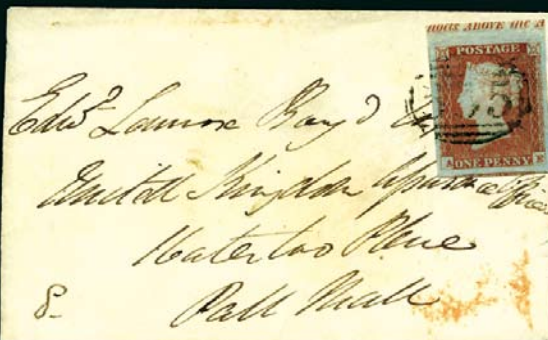 ABOVE the A
POSTAGE
ONE PENNY
Edwd Lennox Boyd
United Kingdom
Waterloo Place
Pall Mall